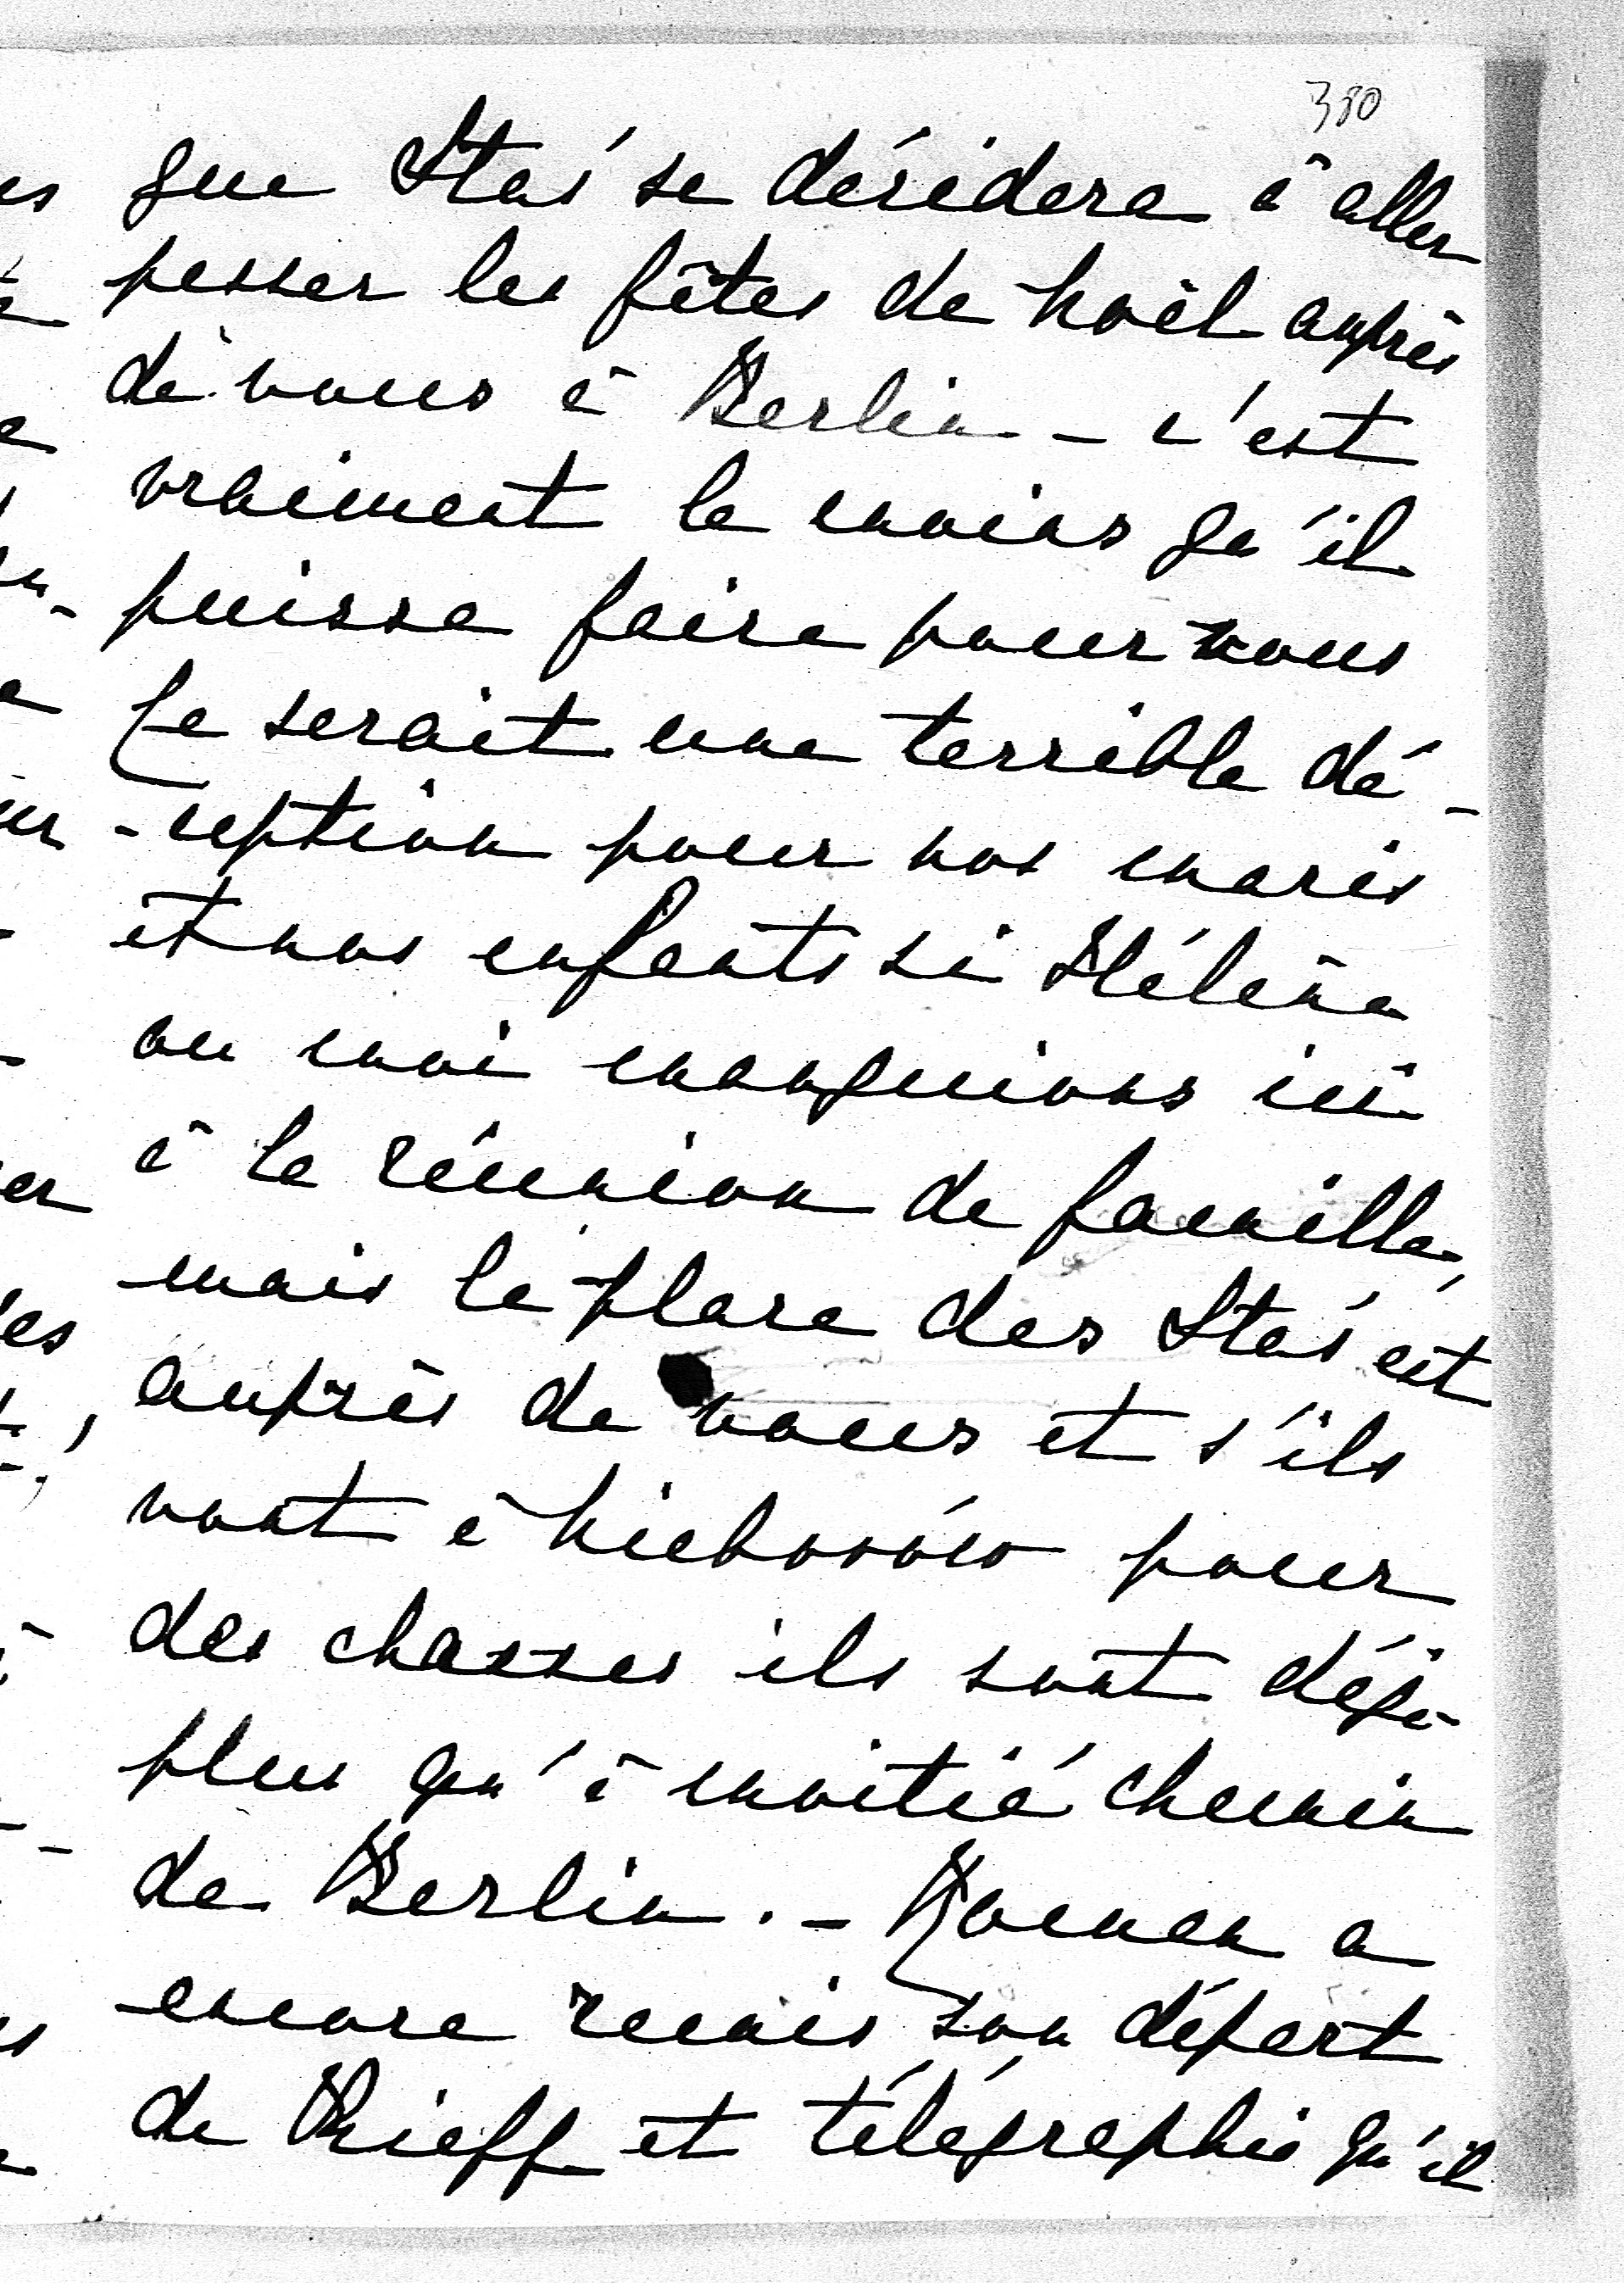 380
que Staś se décidera à aller
passer les fêtes de Noël auprès
de vous à Berlin - c'est
vraiment le moins qu'il
puisse faire pour vous
Ce serait une terrible dé-
-ception pour nos maris
et nos enfants si Hélène
ou moi manquions ici
à la réunion de famille,
mais la place des Staś est
auprès de vous et s'ils
vont à pour
des chasses ils sont déjà
plus qu'à moitié chemin
de Berlin. - Roman a
encore remis son départ
de Kieff et télégraphie qu'il